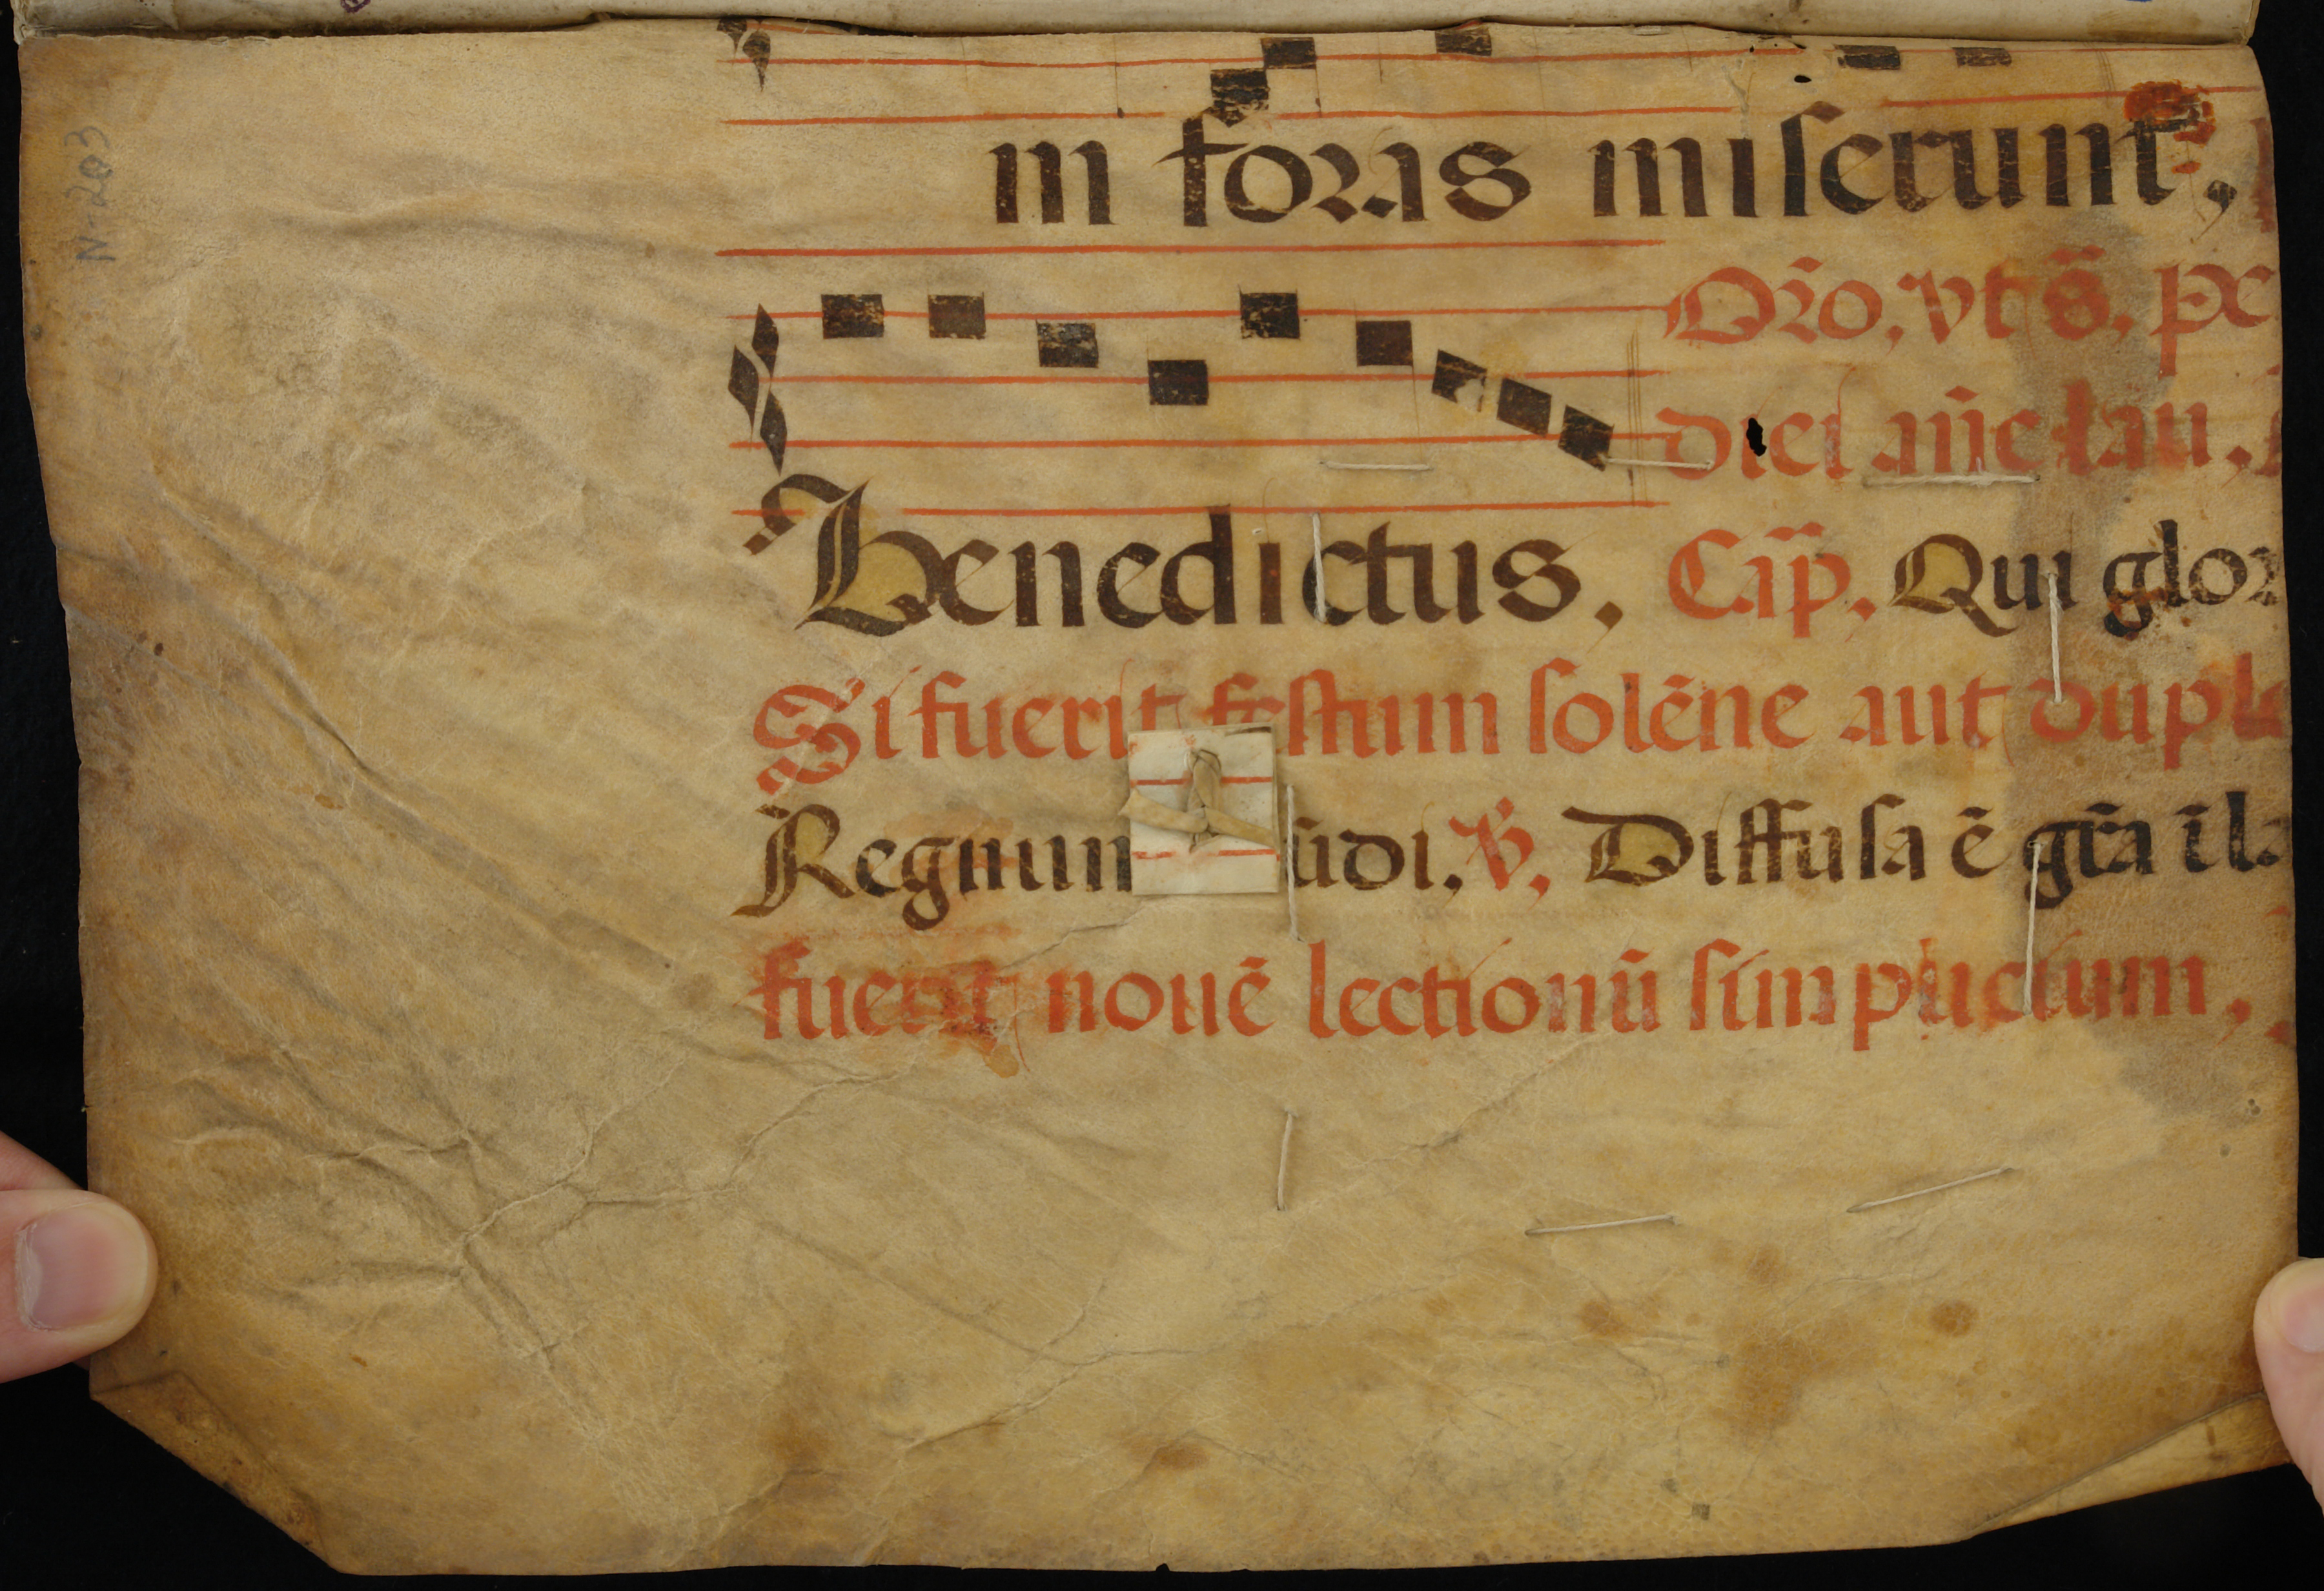 N-203
in foras miserunt,
Oro, vt s̄, p
diei an̄e lau,
Benedictus. Cap̄. Qui glor
Si fuerit festum solēne aut duple
Regnum ūdi, ℣, Diffusa ē gr̄a ī la
fuerit nouē lectionū simplicium,